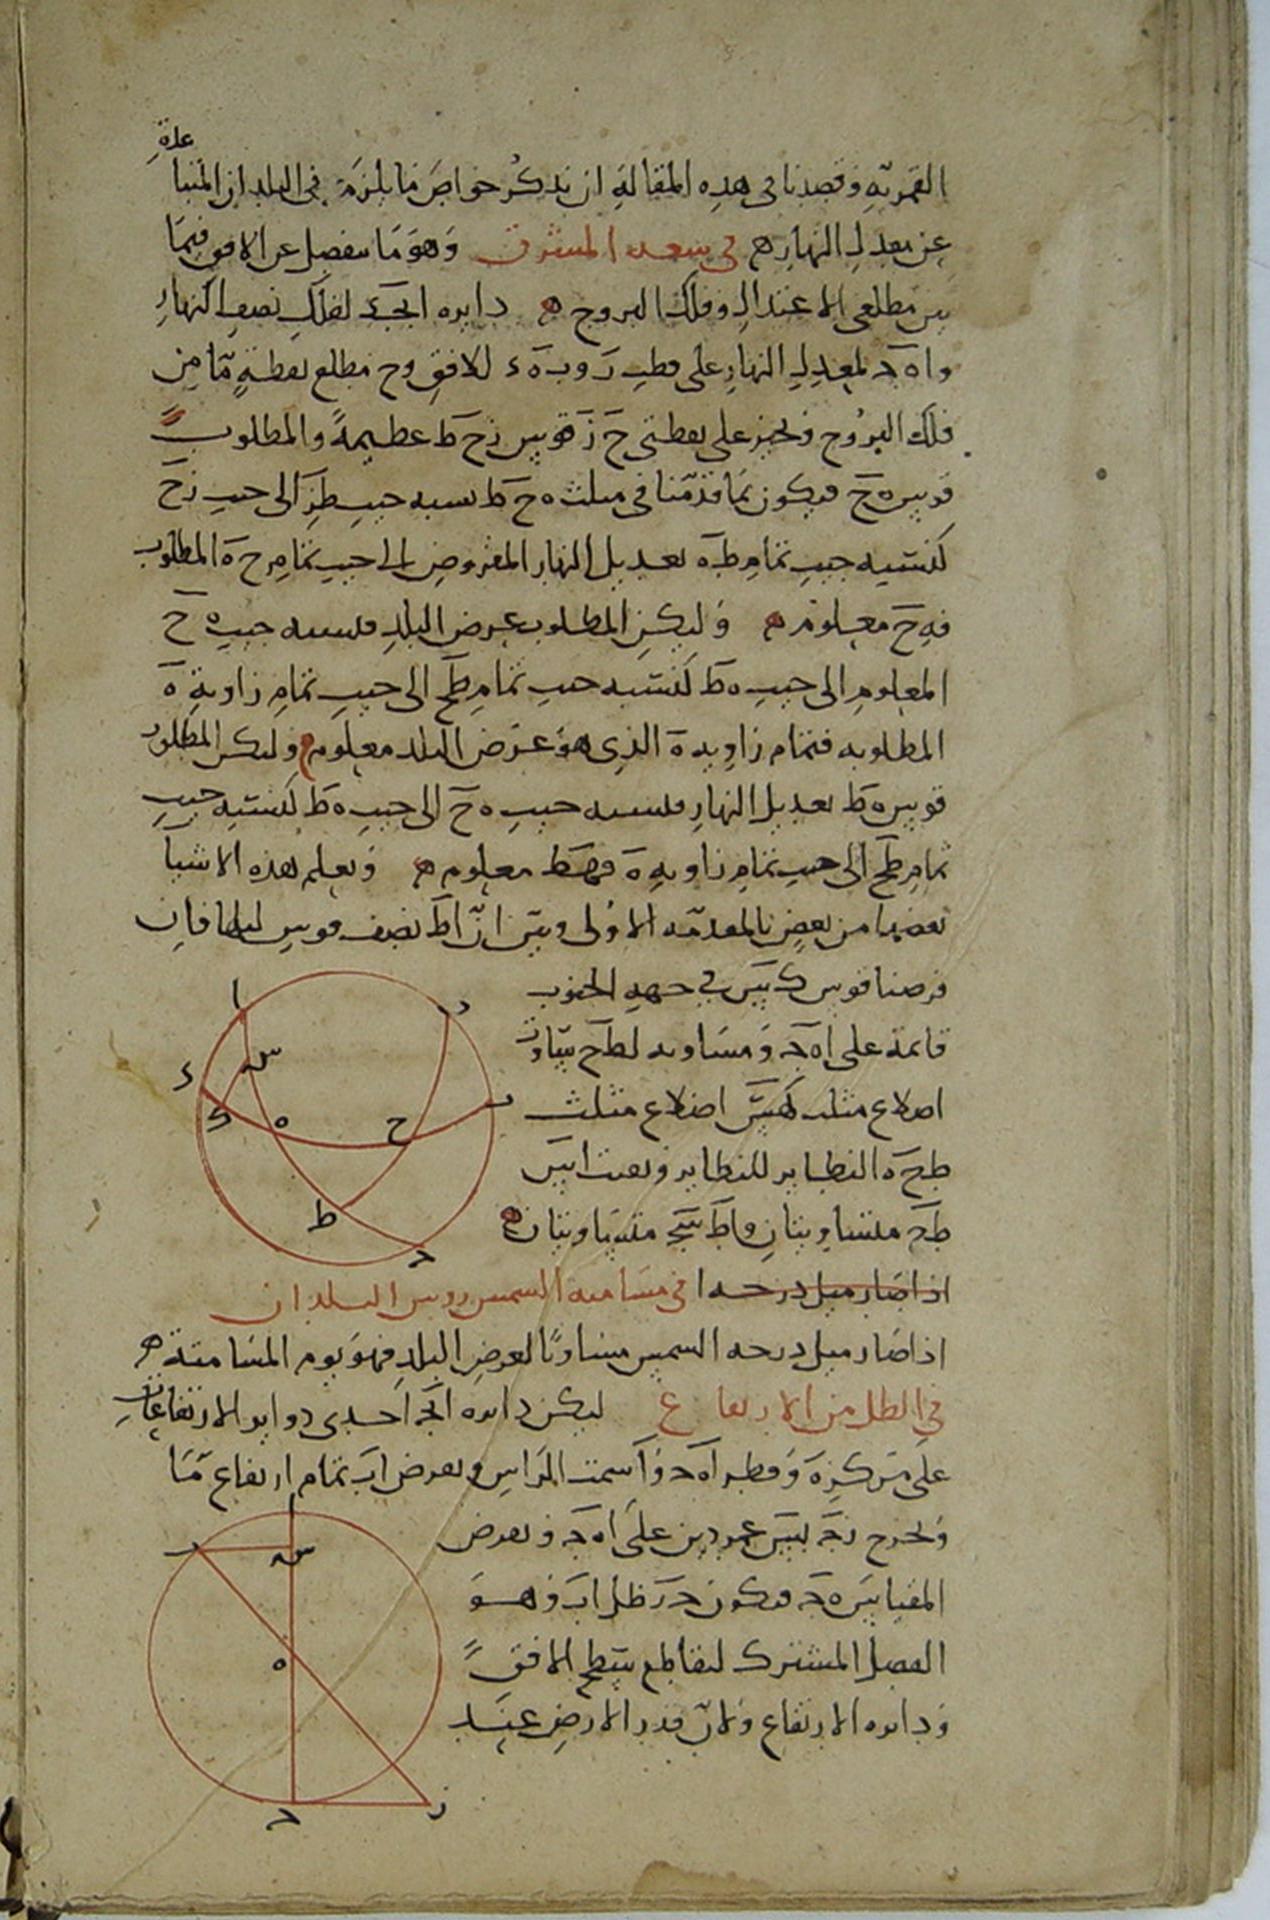 علة
القمرية وقصدنا في هذه المقالة ان نذكر خواص ما يلزم في البلدان المتبا
عن معدل النهار ه في سعة المشرق وهو ما ينفصل عن الافق فيما
بين مطلعي الاعتدال وفلك البروج ه دايرة ابجد لفلك نصف النهار
واه ج لمعدل النهار على قطب ز وب ه د للافق وح مطلع نقطة ما من
فلك البروج ونجيز على نقطتي ح ز قوس زح ط عظيمة والمطلوب
قوس ه ح فيكون بما قدمنا في مثلث ه ح ط نسبة جيب طز الى جيب زح
كنسبة جيب تمام طه تعديل النهار المفروض الى جيب تمام ح ه المطلوب
فه ح معلوم ه وليكن المطلوب عرض البلد فنسبة جيب ه ح
المعلوم الى جيب ه ط كنسبة جيب تمام طح الى جيب تمام زاوية ه
المطلوبة فتمام زاوية ه الذي هو عرض البلد معلوم ه وليكن المطلوب
قوس ه ط تعديل النهار فنسبة جيب ه ح الى جيب ه ط كنسبة جيب
تمام طح الى جيب تمام زاوية ه فه ط معلوم ه ونعلم هذه الاشيا
بعضها من بعض بالمقدمة الاولى وبين ان اط نصف قوس ليلها فان
فرضنا قوس ك س في جهة الجنوب
قائمة على اه ج ومساوية لطح تساوت
اضلاع مثلث كهس اضلاع مثلث
طح ه النظاير للنظاير وبقيت اس
طج متساويتان واط سج متساويتان ه
اذا صار ميل درجه ا في مسامتة الشمس روس البلدان
اذا صار ميل درجة الشمس مساويا لعرض البلد فهو يوم المسامتة ه
في الظل من الارتفاع ليكن دايرة ابج احدى دواير الارتفاعات
على مركز ه وقطر اه ج وا سمت الراس ونفرض اب تمام ارتفاع ما
ونخرج زج بس عمودين على اه ج ونفرض
المقياس ه ج فيكون جز ظل اب وهو
الفصل المشترك لتقاطع سطح الافق
ودايرة الارتفاع ولان قدر الارض عند
ا
ب
ز
س
د
ك
ه
ح
ط
ج
ا
ب
س
ه
ج
ز